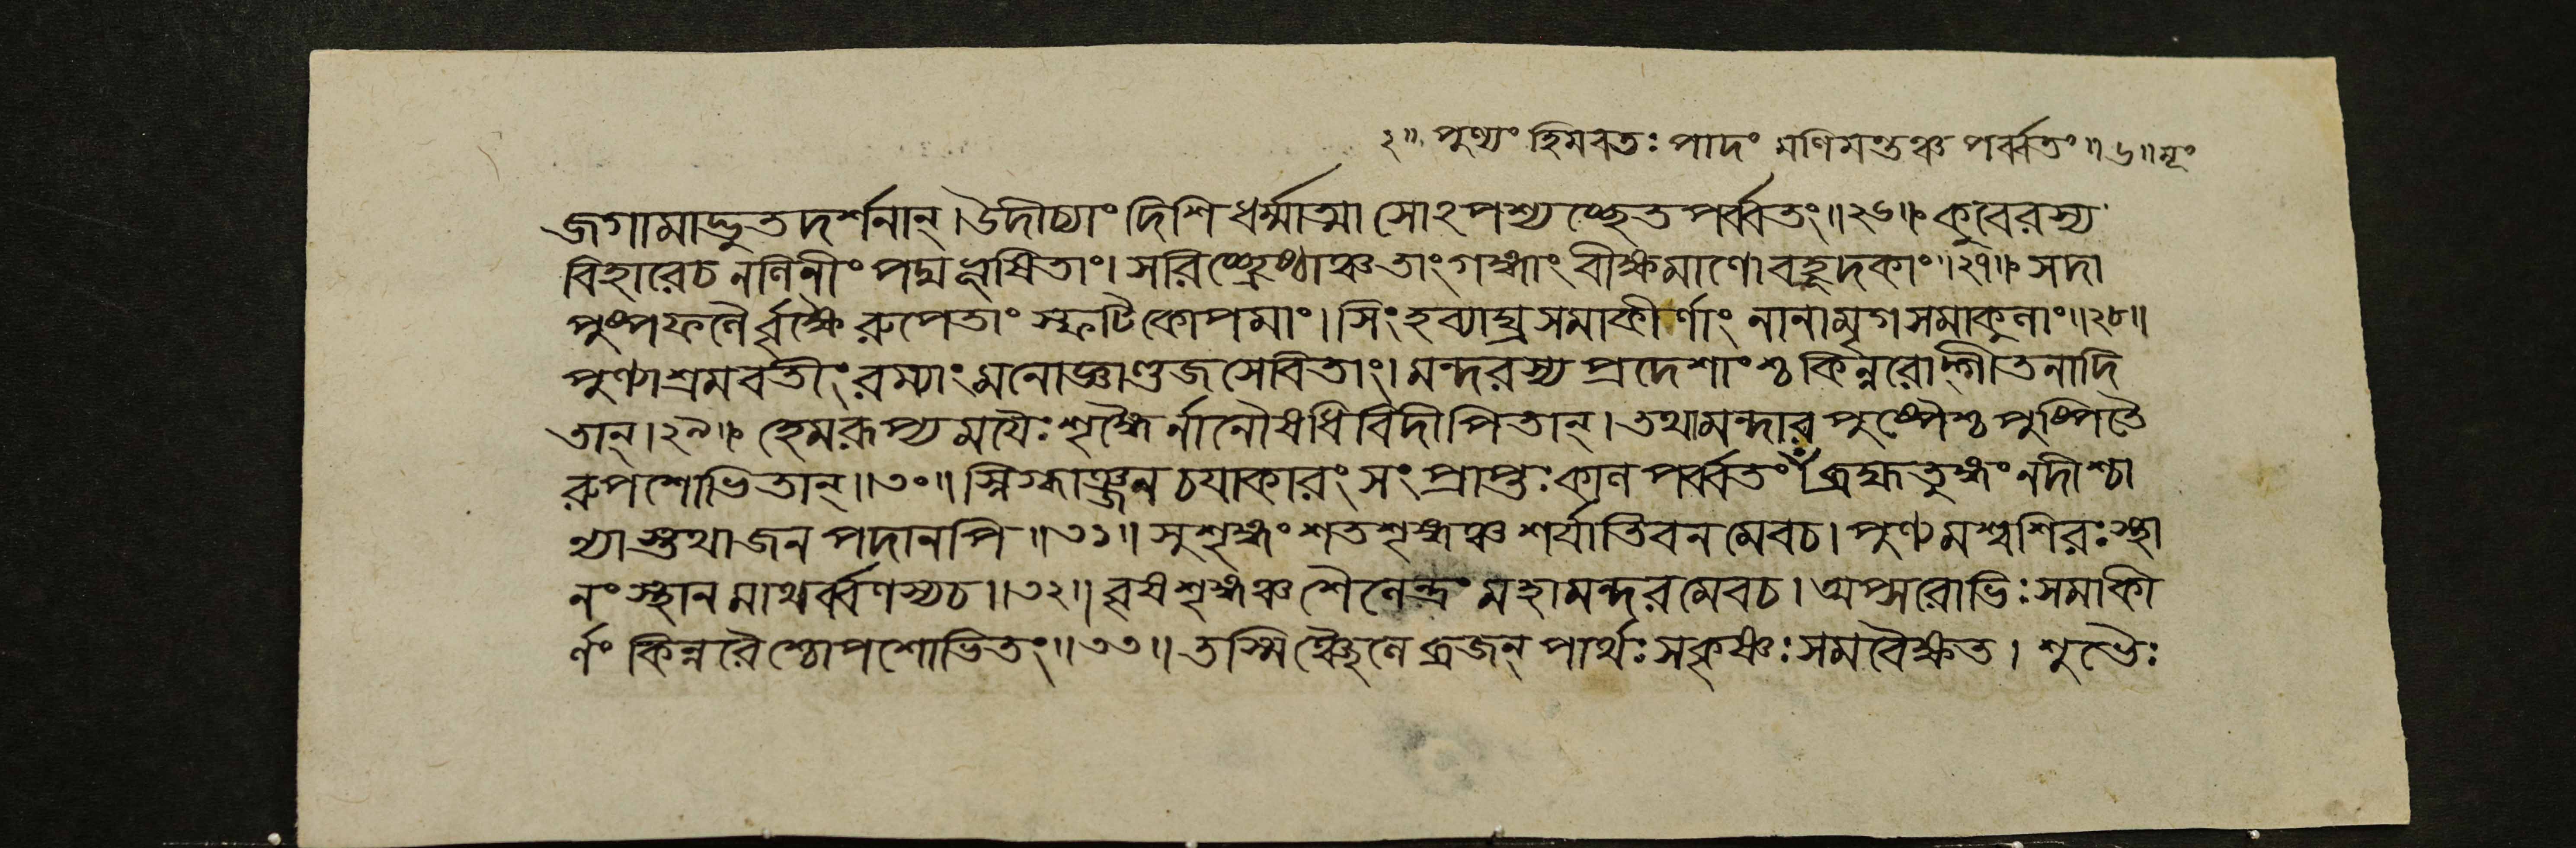 ২॥ পুণ্যং হিমবতঃ পাদং মণিমন্তঞ্চ পর্ব্বতং॥৬॥মূং
জগামাদ্ভুতদর্শনান্।উদীচ্যাং দিশি ধর্ম্মাত্মা সোঽপশ্যচ্ছ্বেতপর্ব্বতং॥২৬॥ কুবেরস্য
বিহারেচ নলিনীং পদ্মভূষিতাং। সরিচ্ছ্রেষ্ঠাঞ্চ তাং গঙ্গাং বীক্ষমাণো বহূদকাং॥২৭॥ সদা
পুষ্পফলৈর্বৃক্ষৈরুপেতাং স্ফটিকোপমাং। সিংহব্যাঘ্রসমাকীর্ণাং নানামৃগসমাকুলাং॥২৮॥
পুণ্যাশ্রমবতীং রম্যাং মনোজ্ঞাণ্ডজসেবিতাং। মন্দরস্য প্রদেশাংশ্চ কিন্নরোদ্গীতনাদি
তান্।২৯॥ হেমরূপ্যময়ৈঃ শৃঙ্গৈর্নানৌষধিবিদীপিতান্। তথা মন্দারপুষ্পৈশ্চ পুষ্পিতৈ
রুপশোভিতান্॥৩০॥ স্নিগ্ধাঞ্জনচয়াকারং সংপ্রাপ্তঃ কালপর্ব্বতং ব্রহ্মতুঙ্গং নদীশ্চা
ন্যাস্তথা জনপদানপি॥৩১॥ সুশৃঙ্গং শতশৃঙ্গঞ্চ শর্যাতিবনমেবচ। পুণ্যমশ্বশিরঃস্থা
নং স্থানমাথর্ব্বণস্যচ॥৩২॥ বৃষশৃঙ্গঞ্চ শৈলেন্দ্রং মহামন্দরমেবচ। অপ্সরোভিঃ সমাকী
র্ণং কিন্নরৈশ্চোপশোভিতং॥৩৩॥ তস্মিঞ্ছৈলে ব্রজন্ পার্থঃ সকৃষ্ণঃ সমবৈক্ষত। শুভৈঃ